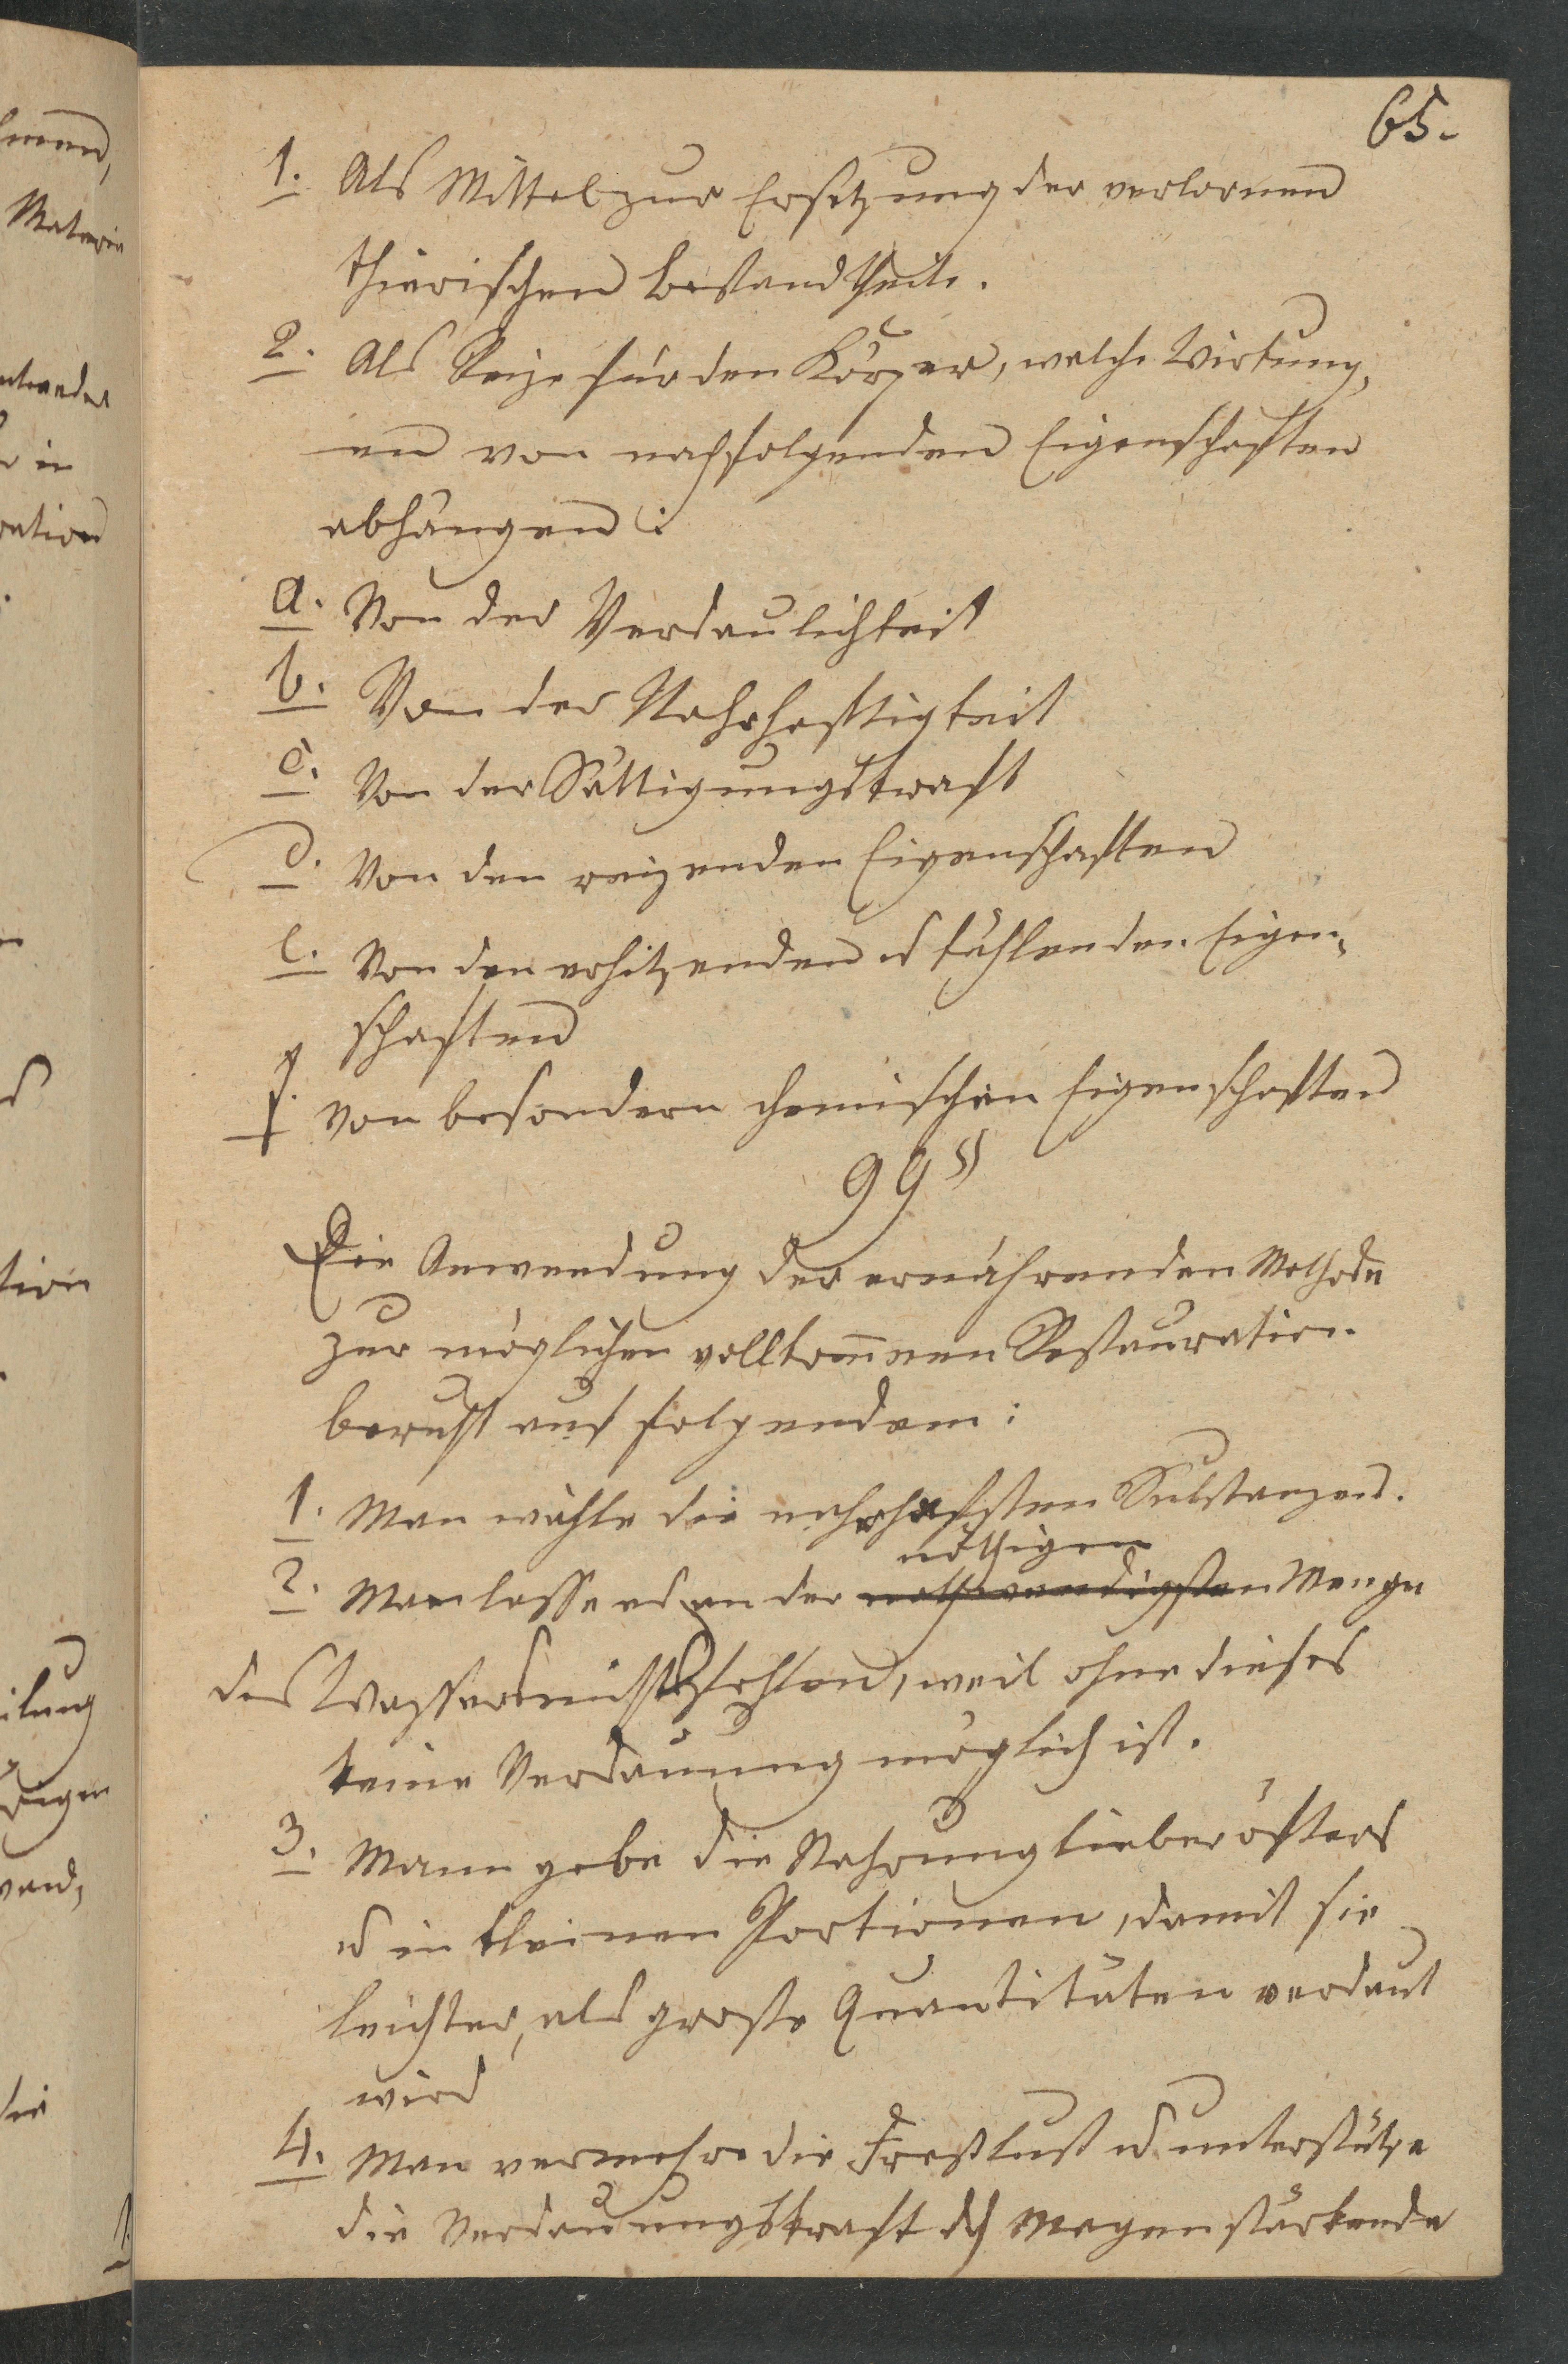 65.
1. Als Mittel zur Ersetzung der verlornen
thierischen Bestandtheile.
2. Als Reize für den Körper, welche Wirkung,
en von nachfolgenden Eigenschaften
abhängen:
a. Von der Verdaulichkeit
b. Von der Nahrhaftigkeit
c. Von der Sättigungskraft
d. Von den reizenden Eigenschaften
e. Von den erhitzenden u kühlenden Eigen,
schaften
f. Von besondern chemischen Eigenschaften
99 §
Die Anwendung der ernährenden Methode
zur möglichen vollkom̅nen Restauration
beruht auf folgendem:
1. Man wähle die nahrhaftsten Substanzen.
nöthigen
2. Man lasse es an der nothwendigsten Menge
des Wassers nicht fehlen, weil ohne dieses
keine Verdauung möglich ist.
3. Mann gebe die Nahrung lieber öfters
u in kleinen Portionen, damit sie
leichter, als große Quantitäten verdaut
wird
4. Man vermehre die Freßlust u unterstütze
die Verdauungskraft dch Magenstärkende